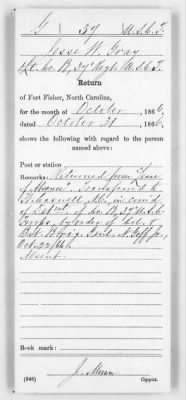 G 37 U.S.C.T.
Jesse W. Gray
Lt. Co. B, 37 Regt. U.S.C.T.
Return
of Fort Fisher, North Carolina,
for the month of October, 1866
dated October 31, 1866,
shows the following with regard to the person
named above:
Post or station
Remarks: Returned from leave
of absence. Transferred to
N.C., in comd.
of Co. B, 37 U.S.C.
Troops, by order of Col. &
Bvt. Brig. Genl. N. Goff Jr.,
Oct. 66.
Absent.
Book mark:
J. Mean
(646) Copyist.